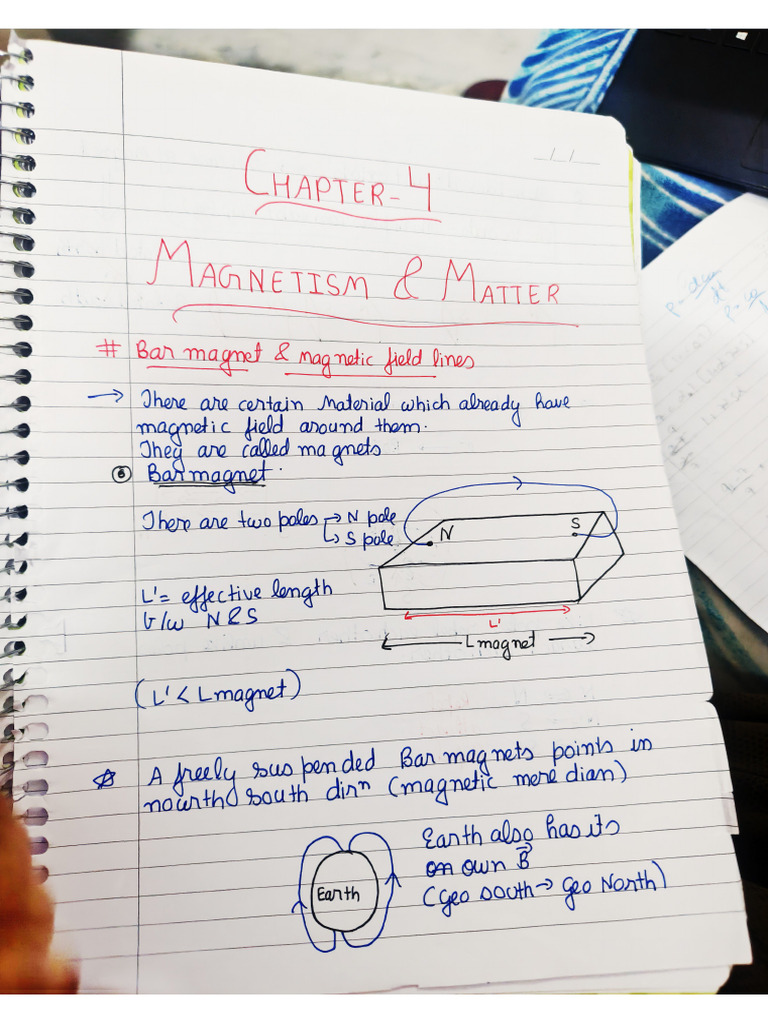 CHAPTER-4
MAGNETISM & MATTER
# Bar magnet & magnetic field lines
→ There are certain Material which already have
magnetic field around them.
They are called magnets.
Bar magnet.
There are two poles → N pole
↳ S pole
N
S
L' = effective length
b/w N & S
L'
L magnet
(L' < L magnet)
A freely suspended Bar magnets points in
nourth south dirⁿ (magnetic mere dian)
Earth also has its
own B⃗
(Geo South → Geo North)
Earth